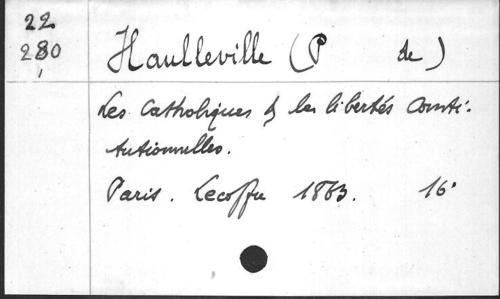 22
280
Haulleville (P de)
Les Catholiques & les libertés consti-
tutionnelles.
Paris. Lecoffre 1863. 16°